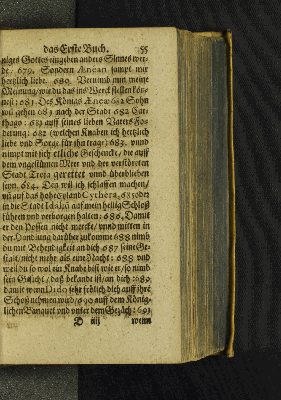 das Erste Buch. 55
ziges Gottes eingeben anders Sinnes wer-
de. 679. Sondern Ænean sampt mir
hertzlich liebe. 680. Vernimb nun meine
Meinung/ wie du das ins Werck stellen kön-
nest: 681. Des Königs Æneæ 682 Sohn
wil gehen 683 nach der Stadt 682 Car-
thago: 681 auff seines lieben Vaters Fo-
derung: 682 (welchen Knaben ich hertzlich
liebe vnd Sorge für ihn trage) 683. vnnd
nimpt mit sich etliche Geschencke/ die auff
dem vngestümen Meer vnd der verstörten
Stadt Troja gerettet vnnd überblieben
seyn. 684. Den wil ich schlaffen machen/
vñ auf das hohe Eyland Cythera, 685 oder
in die Stadt Idaliũ auf mein heilig Schloß
führen vnd verborgen halten: 686. Damit
er den Possen nicht mercke/ vnnd mitten in
der Handlung darüber zukomme 688 nimb
du mit Behendigkeit an dich 687 seine Ge-
stalt/ nicht mehr als eine Nacht: 688 vnd
weil du so wol ein Knabe bist wie er/ so nimb
sein Gesicht/ das bekande ist/ an dich: 689.
damit wenn Dido sehr frölich dich auff ihre
Schoß nehmen wird/ 690 auff dem König-
lichen Banquet vnd vnter dem Gezäch: 691
D iiij wenn